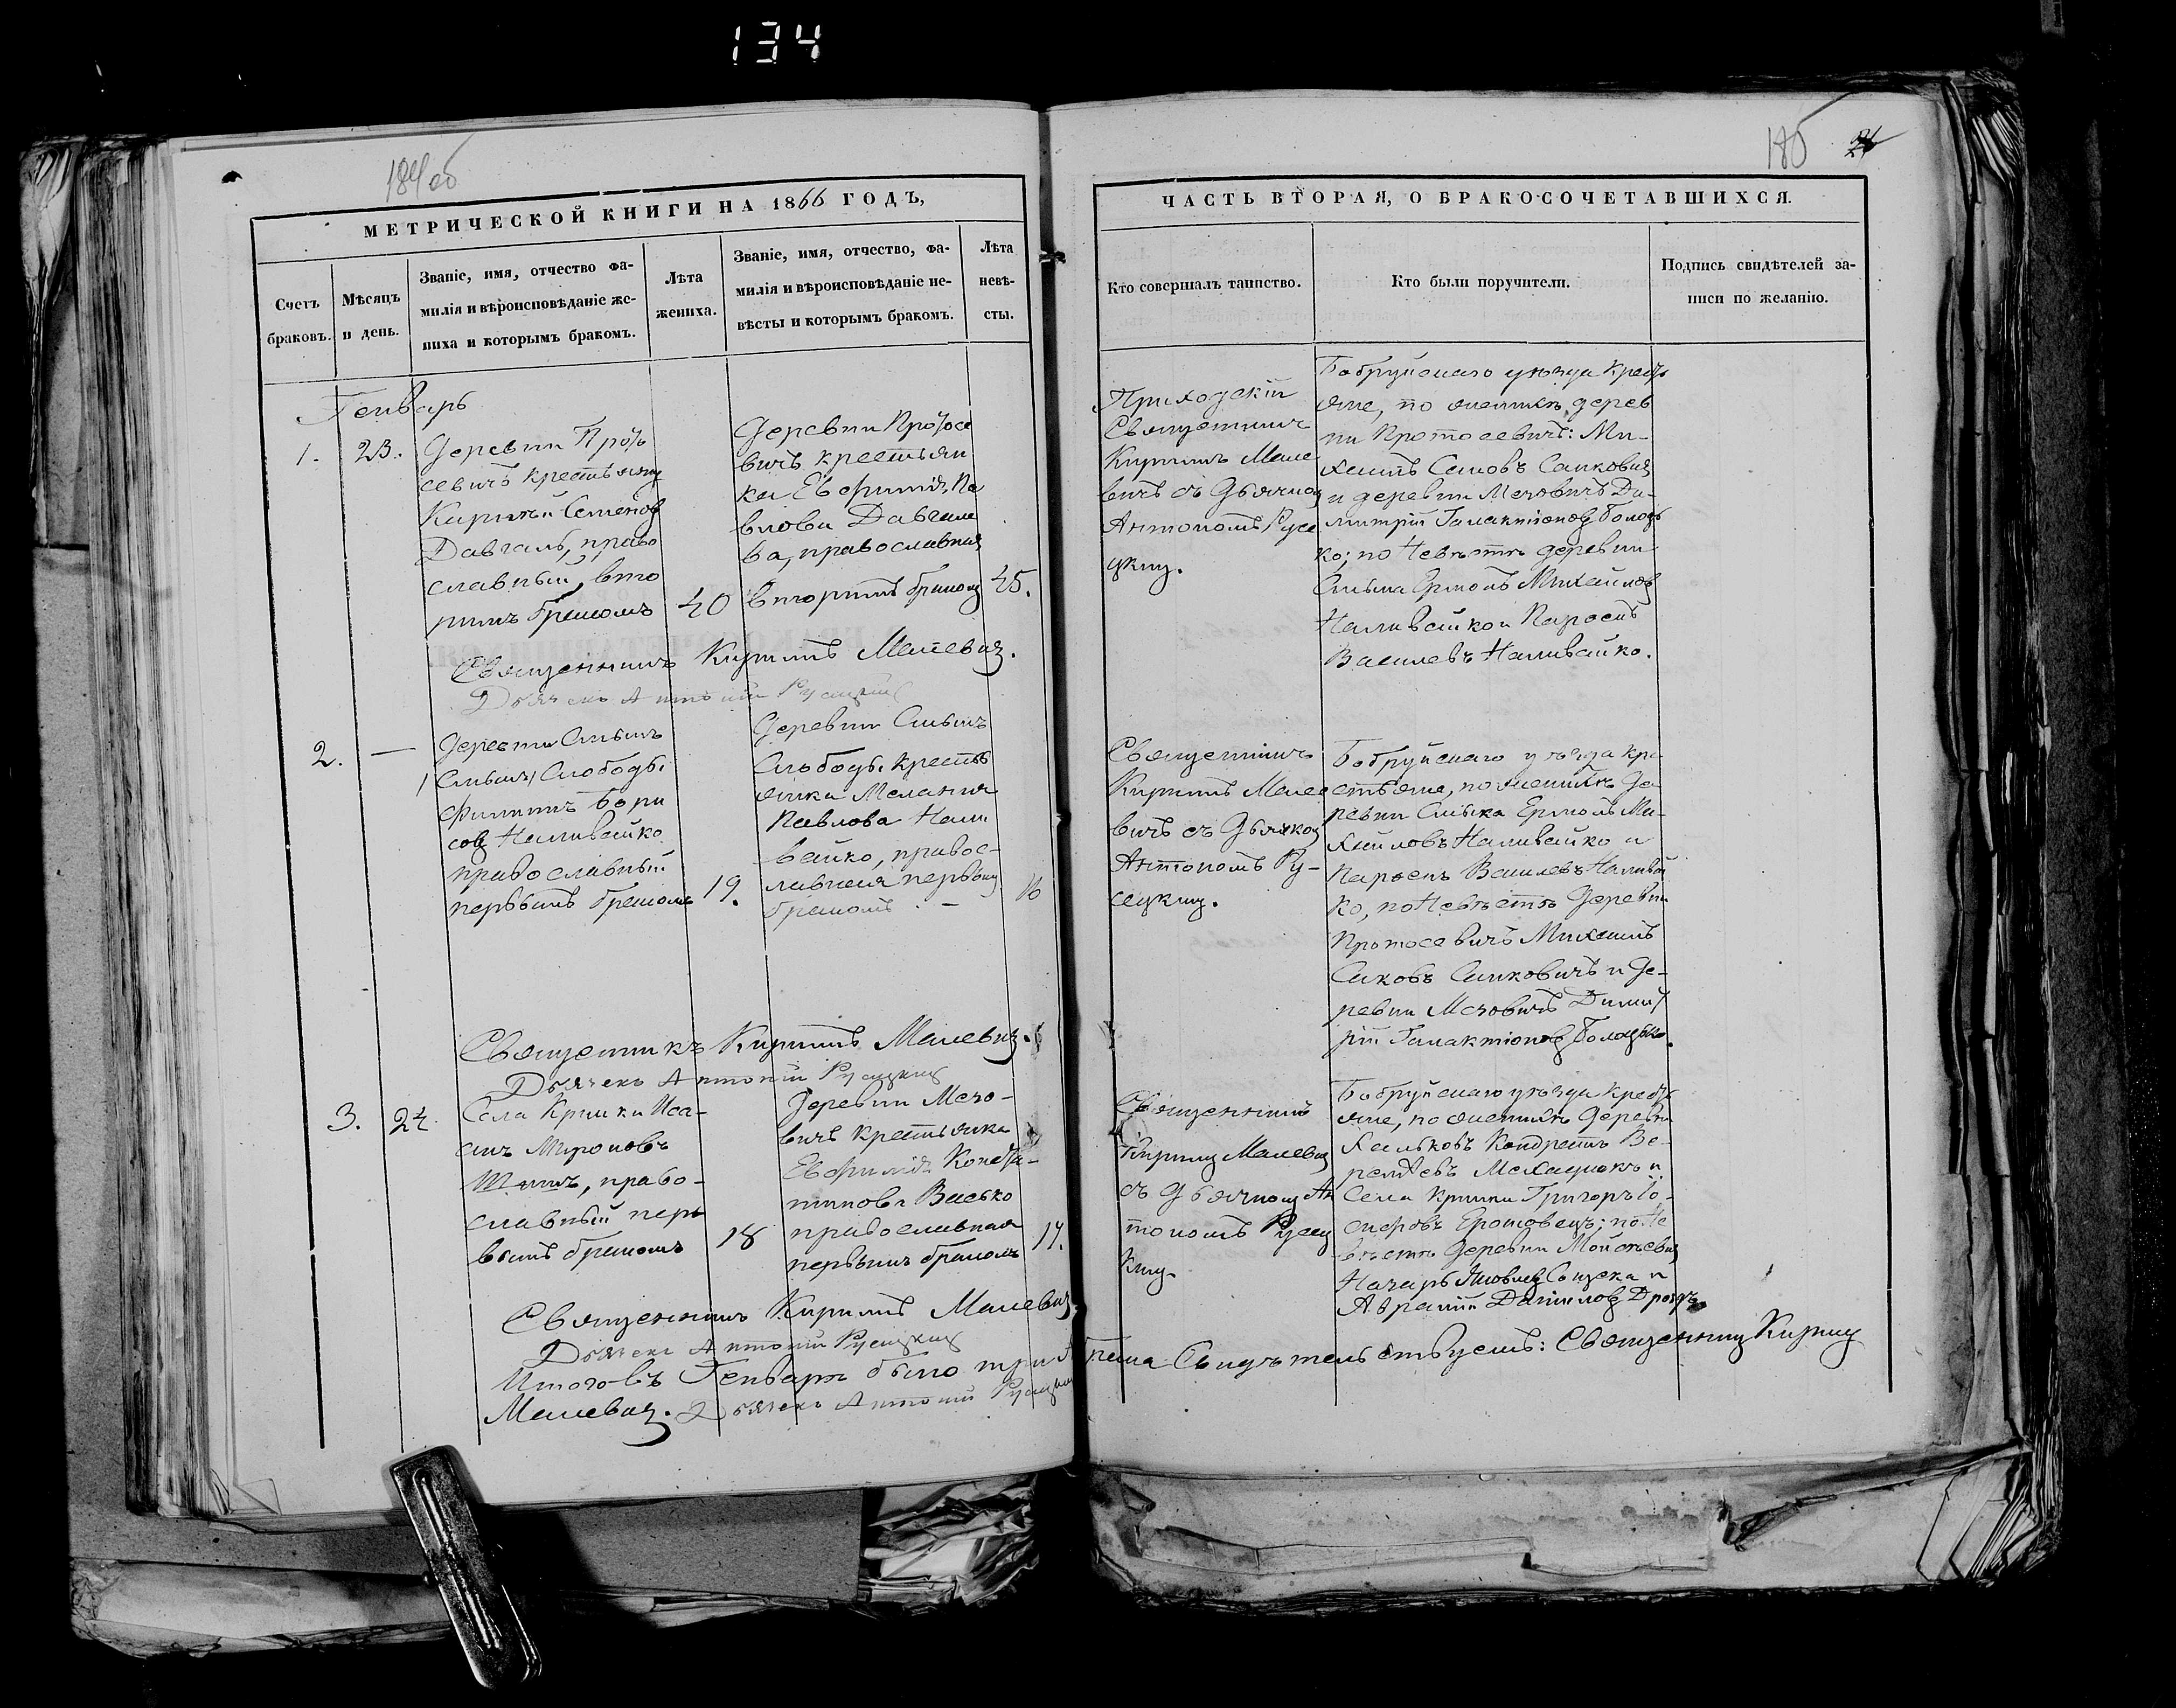 134
184об
МЕТРИЧЕСКОЙ КНИГИ НА 1866 ГОДЪ,
Счетъ
браковъ.
Мѣсяцъ
и день.
Званіе, имя, отчество фа-
милія и вѣроисповѣданіе же-
ниха и которымъ бракомъ.
Лѣта
жениха.
Званіе, имя, отчество, фа-
милія и вѣроисповѣданіе не-
вѣсты и которымъ бракомъ.
Лѣта
невѣ-
сты.
Генварь
1.
23.
Деревни Прото
севичъ крестьянинъ
Кирилъ Семеновъ
Давгаль, право
славный, вто
рымъ бракомъ
40
Деревни Протосе
вичъ крестьян
ка Евфимія Па
влова Давгале
ва, православная
вторымъ бракомъ
45.
Священникъ Кирилъ Малевичъ.
Дьячекъ Антоній Русецкій
2.
—
Деревни Слыш
Слободы
Филиппъ Бори
совъ Наливайко
православный
первымъ бракомъ
19.
Деревни
Слободы кресть
янка Меланія
Павлова Нали
вайко, правос-
лавная первымъ
бракомъ. –
16
Священникъ Кирилъ Малевичъ.
Дьячекъ Антоній Русецкій
3.
24.
Села Кринки Иса-
акъ Мироновъ
право-
славный пер
вымъ бракомъ
18
Деревни Мезо-
вичъ крестьянка
Евфимія Конста-
нтинова Васько
православная
первымъ бракомъ
17.
Священникъ Кирилъ Малевичъ
Дьячекъ Антоній Русецкій
Итого въ Генварѣ было три брака Свидѣтельствуетъ: Священникъ Кирилъ
Малевичъ. Дьячекъ Антоній Русецкій
185
ЧАСТЬ ВТОРАЯ, О БРАКОСОЧЕТАВШИХСЯ.
Кто совершалъ таинство.
Кто были поручители.
Подпись свидѣтелей за-
писи по желанію.
Приходскій
Священникъ
Кирилъ Мале
вичъ съ Дьячкомъ
Антономъ Русе
цкимъ.
Бобруйскаго уѣзда крест
яне, по женихѣ дерев
ни Протосевичъ: Ми-
хаилъ Санковичъ
и деревни Мезовичъ Ди-
митрій Галактіоновъ
ко; по Невѣстѣ деревни
Ермолъ Михайловъ
Наливайко и Парфенъ
Василевъ Наливайко.
Священникъ
Кирилъ Мале
вичъ съ Дьячкомъ
Антономъ Ру-
сецкимъ.
Бобруйскаго уѣзда кре
стьяне, по женихѣ Де
ревни Ермолъ Ми-
хайловъ Наливайко и
Парфенъ Василевъ Наливай
ко, по Невѣстѣ Деревни
Протосевичъ Михаилъ
Санковичъ и Де-
ревни Мезовичъ Димит
рій Галактіоновъ
Священникъ
Кирилъ Малевичъ
съ Дьячкомъ Ан
тономъ Русец
кимъ.
Бобруйскаго уѣзда крест
яне, по женихѣ Деревни
Кондратъ
и
Села Кринки Григорь
по Не
вѣстѣ Деревни
Назаръ и
Аврамій Даниловъ Дроздъ.